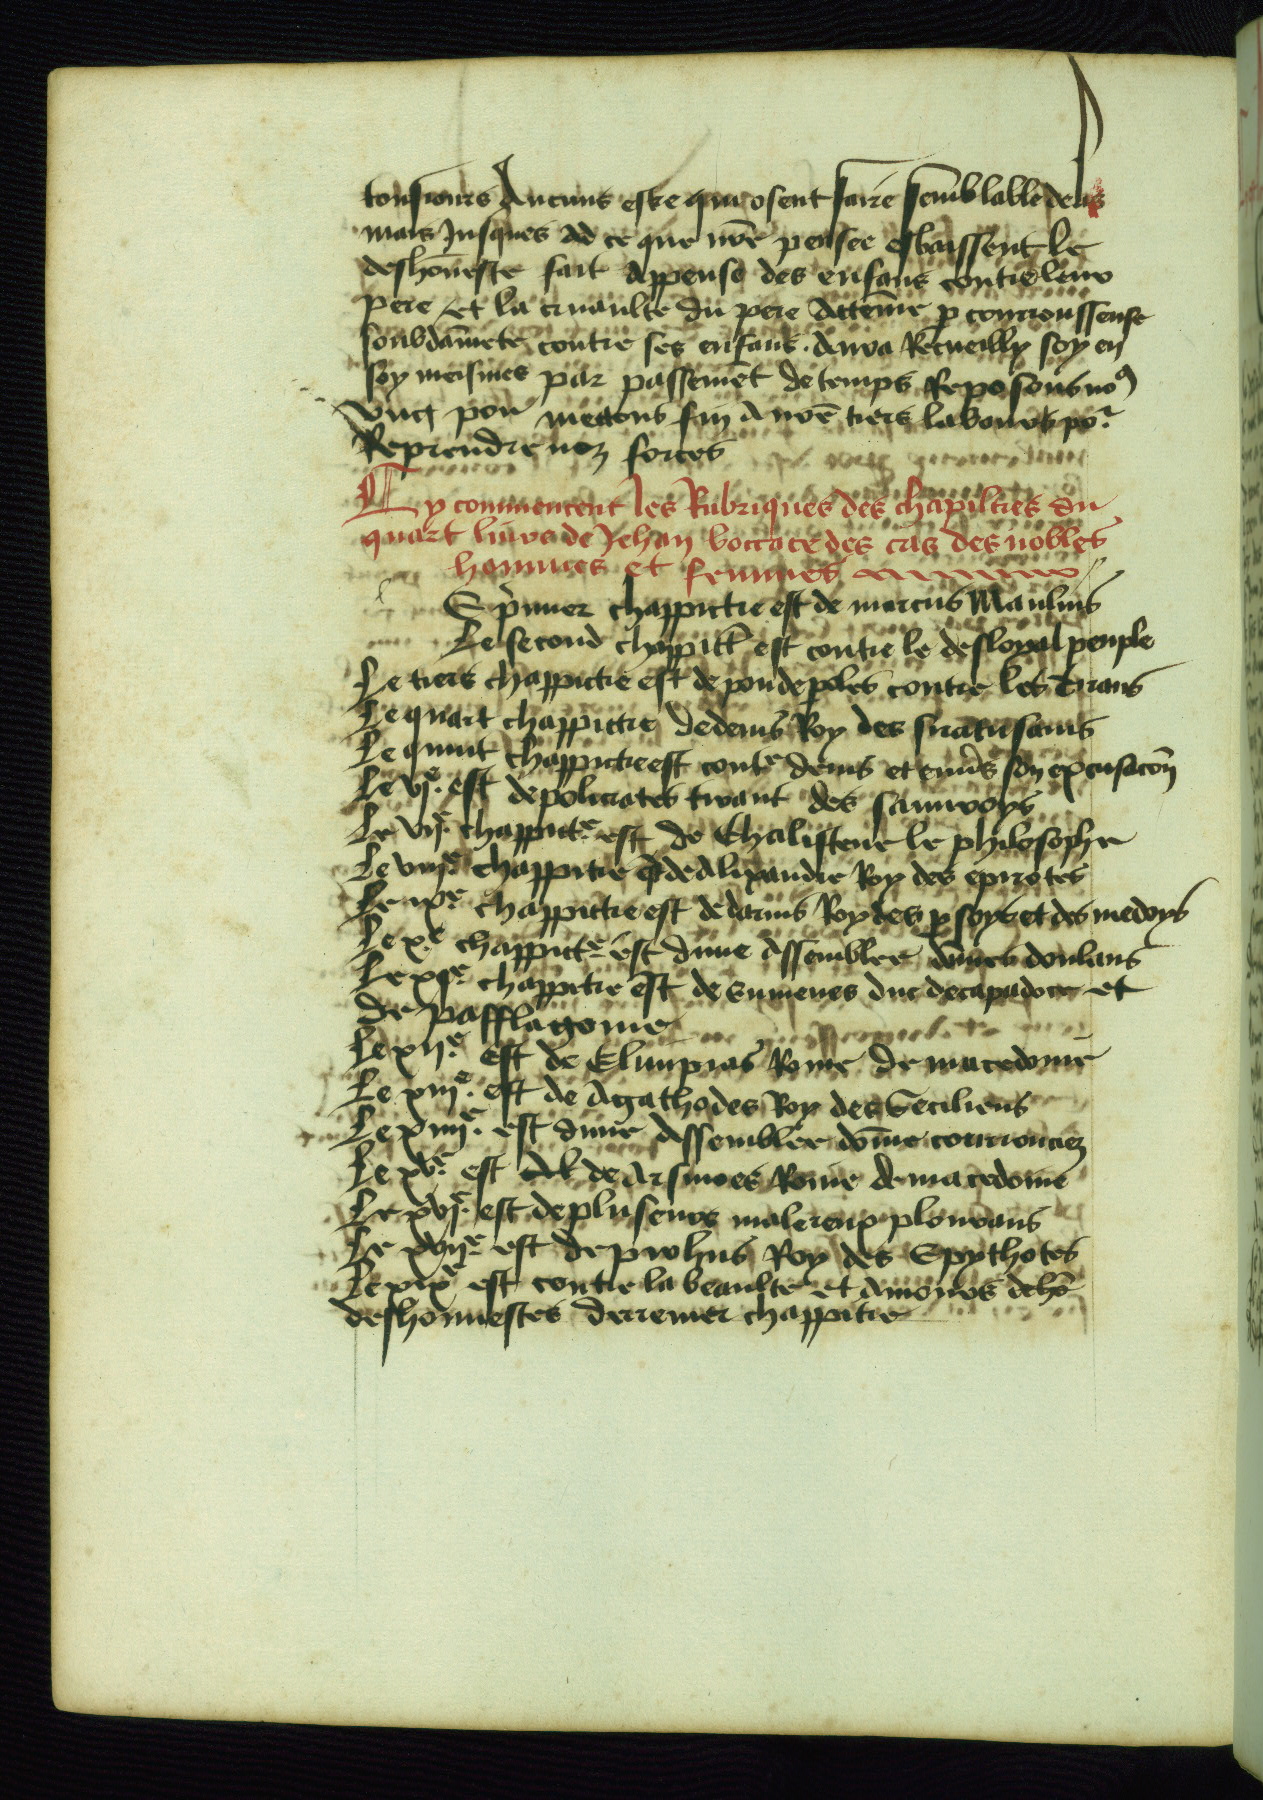 tousiours Aucuns est ce qui osent faire semblable deulz
mais Jusques ad ce que nr̄e pensee esbaissent le
deshōneste fait Appense des enfans contre leur
pere et la cruaulte du pere Attem̄e p̱ courroussense
soubdāmete contre ses enfans . Aura Recueilly soy en
soy meismes par passemēt de temps Reposons noꝯ
vng pou mettons fin A nr̄e tiers labour po᷑
Reprendre noz forces
Cy commencent les Rubriques des chapiltres du
quart liure de Jehan boccace des cas des nobles
hommes et femmes
E p̄mier chappictre est de marcus Manlius
Le second chappitr̄ est contre le desloyal peuple
Le tiers chappictre est de pou de poles contre les Tirans
Le quart chappictre de denis Roy des siracusains
Le quint chappictre est contr̄e denis et enu̾s son excusacōn
Le vjᵉ. est de policrates tirant des samiroys
Le vijᵉ. chappictr̄e est de Chalistene le philosophe
Le viijᵉ chappitre de Alixandre Roy des epirotes
Le ixᵉ chappictre est de darius Roy des p̱soys et des medoys
Le xᵉ chappictr̄e est dune Assemblee dōmes doulans
Le xjᵉ. chappitre est de Eumenes duc de capadoce et
de pafflagonie
Le xijᵉ. est de Elimpias Roine de macedonie
Le xiijᵉ. est de Agathodes Roy des Seciliens
Le xiiijᵉ. est dune Assemblee dōme courroucez
Le xvᵉ est de Arsinoes Roine de macedonie
Le xvjᵉ. est de pluseurs malereux plourans
Le xvijᵉ est de pirrhus Roy des Epythotes
Le xixᵉ est contre la beaulte et Amours
deshonnestes derrenier chappitre